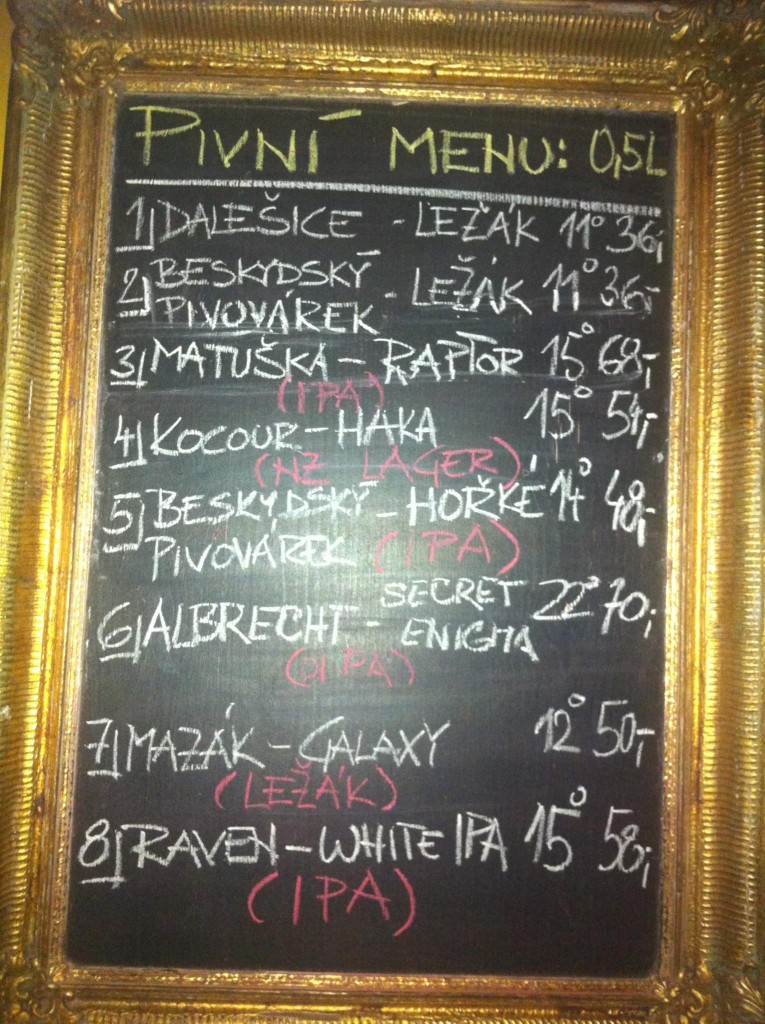 PIVNÍ MENU: 0,5L
1) DALEŠICE - LEŽÁK 11° 36,-
2) BESKYDSKÝ PIVOVÁREK - LEŽÁK 11° 36,-
3) MATUŠKA - RAPTOR 15° 68,-
(IPA)
4) KOCOUR - HAKA 15° 54,-
(NZ LAGER)
5) BESKYDSKÝ - HOŘKÉ 14° 48,-
PIVOVÁREK (IPA)
6) ALBRECHT - SECRET ENIGMA 22° 70,-
(DIPA)
7) MAZÁK - GALAXY 12° 50,-
(LEŽÁK)
8) RAVEN - WHITE IPA 15° 58,-
(IPA)